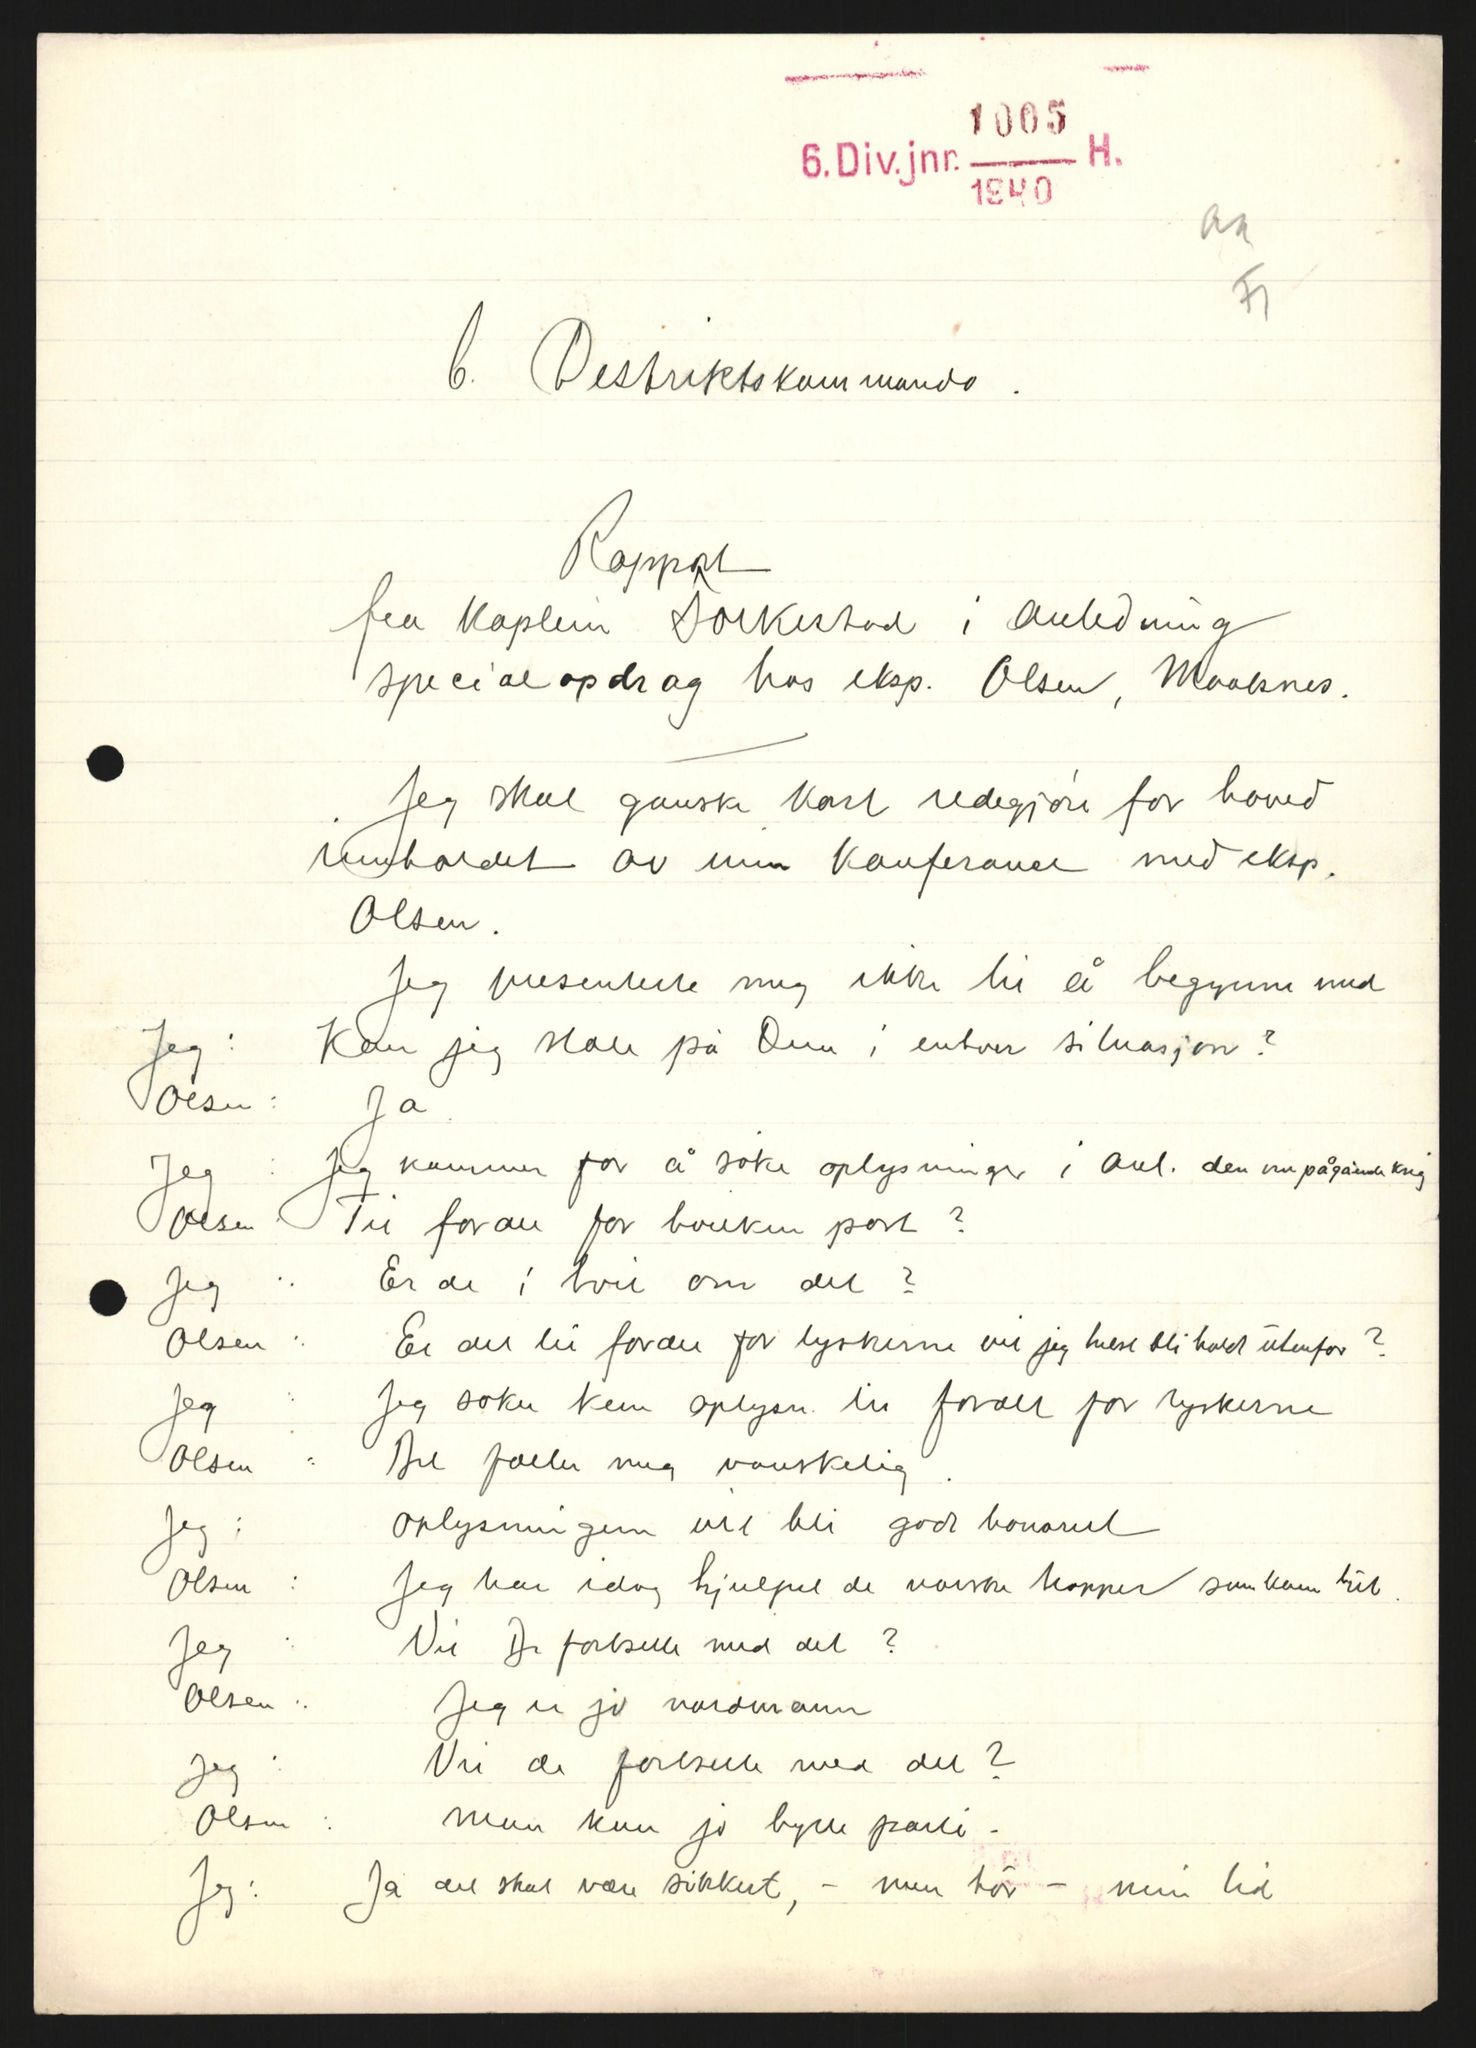 1005
6.Div.jnr. H.
1940
6. Distriktskommando.
Rapport
fra kaptein i anledning
specialopdrag hos eksp. Olsen,
Jeg skal ganske kort redegjøre for hoved
innholdet av min konferanse med eksp.
Olsen.
Jeg presenterte mig ikke til å begynne med
Jeg: Kan jeg stole på Dem i enhver situasjon?
Olsen: Ja
Jeg: Jeg kommer for å søke oplysninger i anl. den nu pågående krig
Olsen: Til fordel for hvilken part?
Jeg: Er de i tvil om det?
Olsen: Er det til fordel for tyskerne vil jeg helst bli holdt utenfor?
Jeg: Jeg søker kun oplysn. til fordel for tyskerne
Olsen: Det faller mig vanskelig.
Jeg: Oplysningene vil bli godt honorert
Olsen: Jeg har idag hjulpet de norske tropper som kom hit.
Jeg: Vil De fortsette med det?
Olsen: Jeg er jo nordmann
Jeg: Vil de fortsette med det?
Olsen: Man kan jo bytte parti -
Jeg: Ja det skal være sikkert, - men hør - min tid